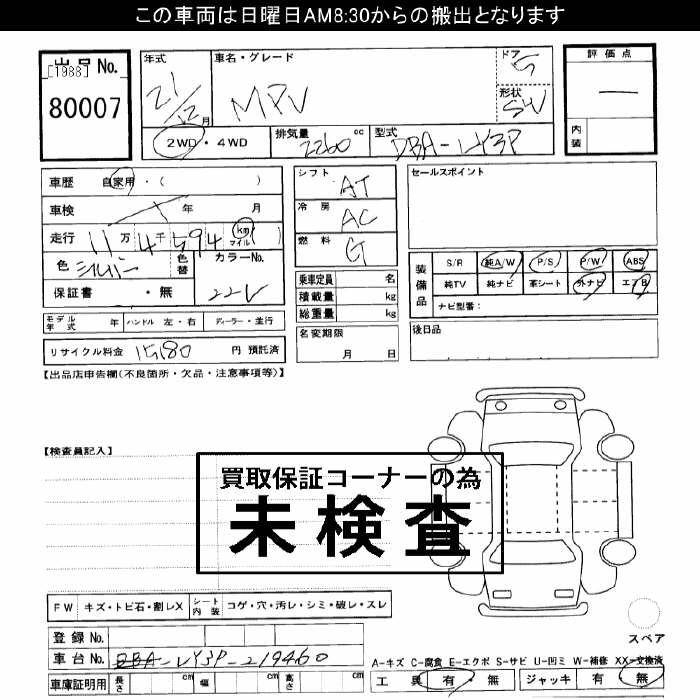 この車両は日曜日AM8:30からの搬出となります
出品No.
[1988]
80007
年式
21/12月
車名・グレード
MPV
ドア
5
形状
SW
評価点
―
内装
2WD・4WD
排気量 2260 cc
型式 DBA-LY3P
車歴 自家用・( )
車検 年 月
走行 11万4千594 km マイル
色 シルバー 色替
カラーNo. 22V
保証書 ・無
シフト AT
冷房 AC
燃料 G
乗車定員 名
積載量 kg
総重量 kg
名変期限
月 日
セールスポイント
装備品
S/R 純A/W P/S P/W ABS
純TV 純ナビ 革シート 外ナビ エアB
ナビ型番:
後日品
モデル年式 年 ハンドル 左・右 ディーラー・並行
リサイクル料金 15180 円 預託済
【出品店申告欄(不良箇所・欠品・注意事項等)】
【検査員記入】
買取保証コーナーの為
未検査
FW キズ・トビ石・割レX シート内装 コゲ・穴・汚レ・シミ・破レ・スレ
スペア
登録No.
車台No. DBA-LY3P-219460
車庫証明用 長さ cm 幅 cm 高さ cm
A-キズ C-腐食 E-エクボ S-サビ U-凹ミ W-補修 XX-交換済
工具 有・無 ジャッキ 有・無